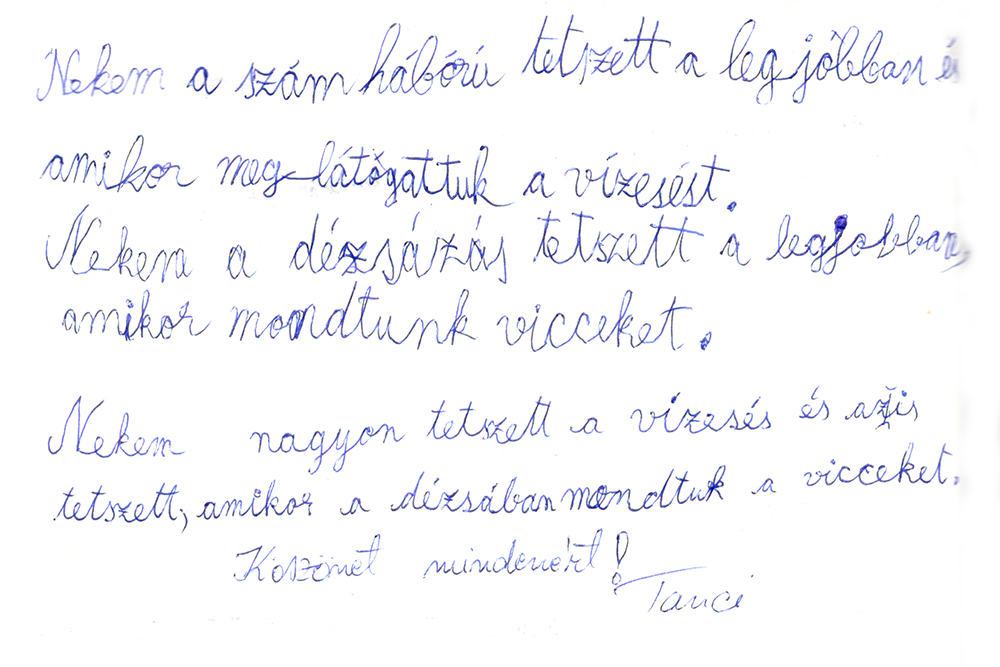 Nekem a szám háború tetszett a leg jobban és
amikor meg látógattuk a vízesést.
Nekem a dézsázás tetszett a legjobban,
amikor mondtunk vicceket.
Nekem nagyon tetszett a vízesés és az is
tetszett, amikor a dézsában mondtuk a vicceket.
Köszönet mindenért!
Tanci